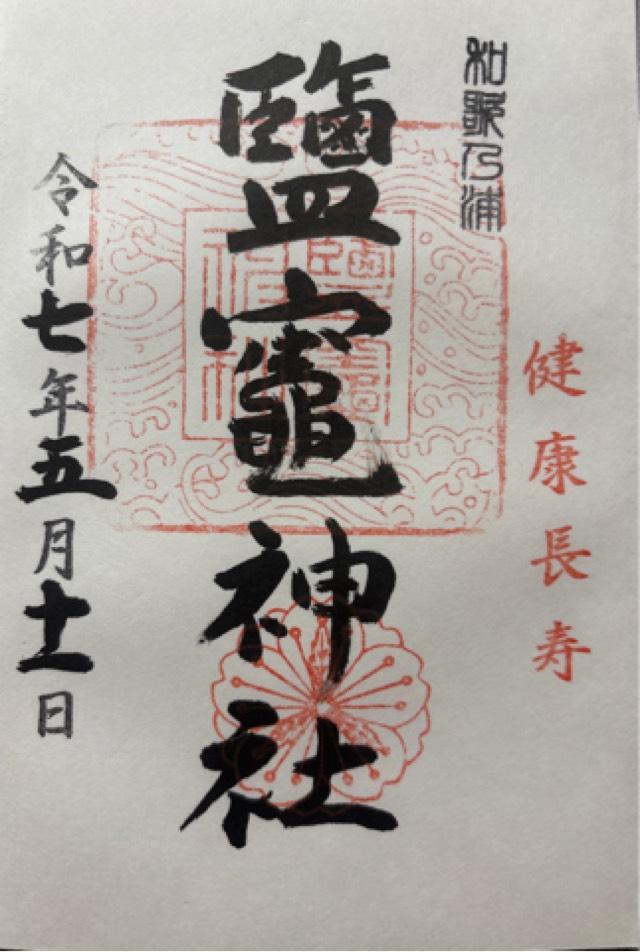 健康長寿
和歌乃浦
鹽竈神社
令和七年五月十一日